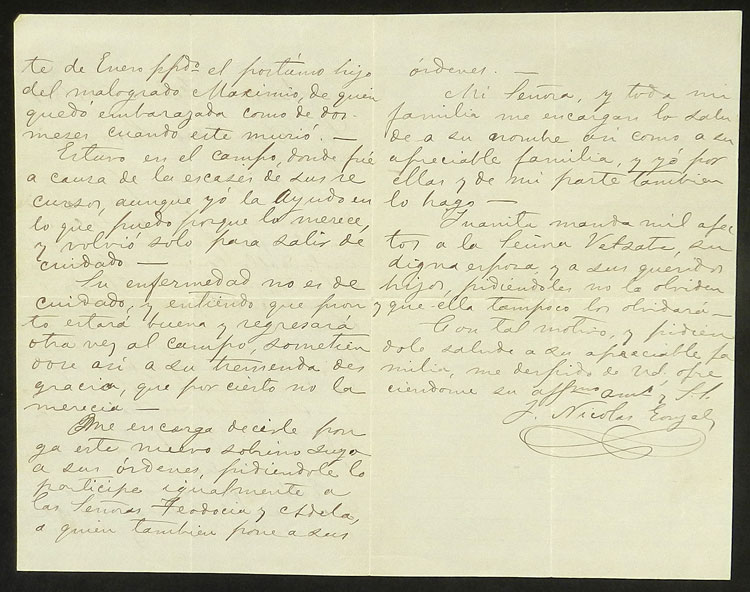 te de Enero ppdo el postúmo hijo
del malogrado Maximio, de quien
quedó embarazada como de dos
meses cuando este murió. —
Estuvo en el campo, donde fué
a causa de la escases de sus re
cursos, aunque yó la ayudo en
lo que puedo porque lo merece,
y volvió solo para salir de
cuidado —
Su enfermedad no es de
cuidado, y entiendo que pron
to estará buena y regresará
otra vez al campo, sometien
dose asi a su tremenda des
gracia, que por cierto no la
merecia —
Me encarga decirle pon
ga este nuevo sobrino suyo
a sus órdenes, pidiendole lo
participe igualmente a
las Señoras Teodocia y Adela,
a quien tambien pone a sus
órdenes. —
Mi Señora, y toda mi
familia me encargan lo salu
de a su nombre, asi como a su
apreciable familia, y yó por
ellas y de mi parte tambien
lo hago —
Juanita manda mil afec
tos a la Señora su
digna esposa, y a sus queridos
hijos, pidiendoles no la olviden
y que ella tampoco los olvidará —
Con tal motivo, y pidien
dole salude a su apreciable fa
milia, me despido de Ud. ofre
ciendome su affmo amº y S.S.
J. Nicolas Gonzalz